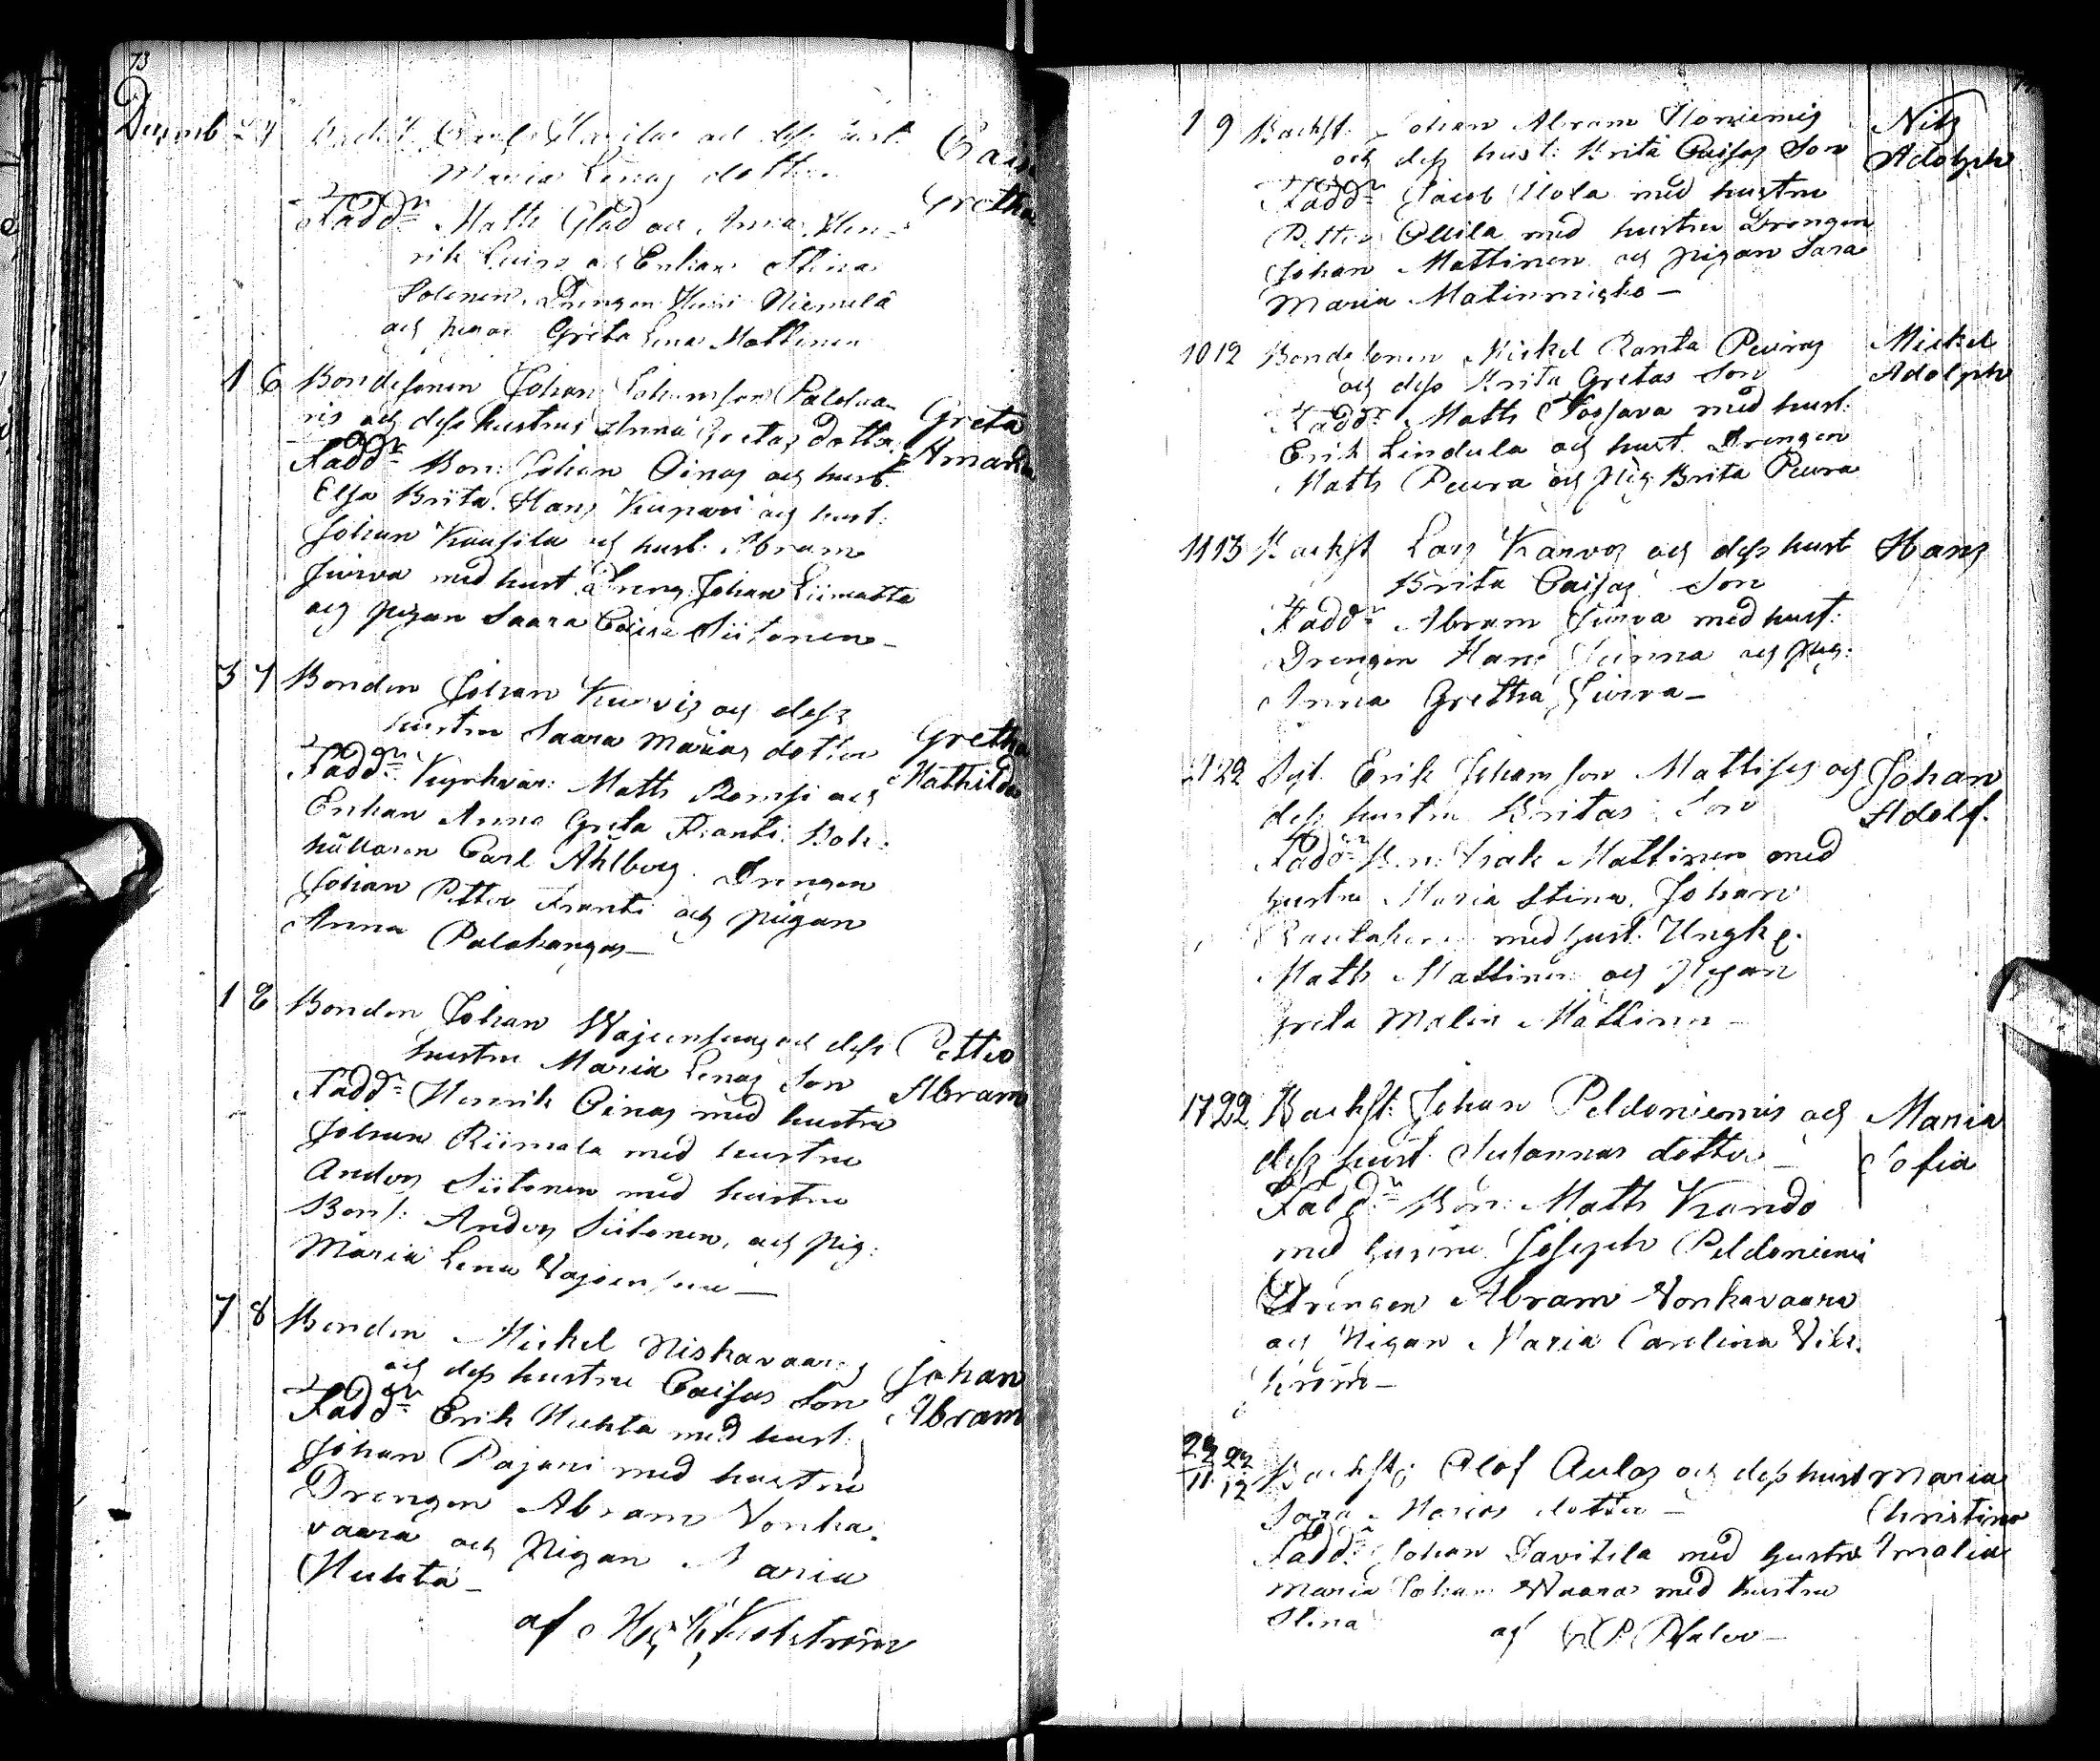 73
Decemb 2 4
Maria Lenas dotter
Caisa
Gretha
Faddr Matts Glad och Anna Hen-
rik och Enkan Stina
Solonen. Drengen Niemelä
och pigan Greta Lena Mattinen
1 6 Bondesonen Johan Johansson Palova-
ris och dess hustrus Anna Gretas dotter
Greta
Amanda
Faddr Bon: Johan Oinas och hust.
Elsa Brita. Hans Kupari och hust:
Johan Kausila och hust. Abram
Jurva med hust Dreng. Johan Liimatta
och pigan Saara Caisa Siitonen -
3 7 Bonden Johan Kurvis och dess
hustru Saara Marias dotter
Gretha
Mathilda
Faddr Kyrkvär: Matts Rompsi och
Enkan Anna Greta Franti. Bok-
hållaren Carl Ahlberg. Drengen
Johan Petter Franti och pigan
Anna Palokangas -
1 8 Bonden Johan Wajensuus och dess
hustru Maria Lenas Son
Petter
Abram
Faddr Henrik Oinas med hustru
Johan Riimala med hustru
Anders Siitonen med hustru
Bons: Anders Siitonen, och pig:
Maria Lena Vajensuu -
7 8 Bonden Mickel Niskavaaras
och dess hustru Caisas Son
Johan
Abram
Faddr Erik Huhta med hust.
Johan Pajari med hustru
Drengen Abram Vonka-
vaara och Pigan Maria
Huhta -
af
1 9 Backst. Johan Abram Honiemis
och dess hust: Brita Caisas Son
Nils
Adolph
Faddr Jacob Ilola med hustru
Petter Ollila med hustru Drengen
Johan Mattinen och pigan Sara
Maria Matinmicko -
10 12 Bondesonen Mickel Ranta Peuras
och dess Brita Gretas Son
Mickel
Adolph
Faddr Matts Poosava med hust.
Erik Lindula och hust. Drengen
Matts Peura och Pig. Brita Peura
11 13 Backst Lars Karvos och dess hust
Brita Caisas Son
Hans
Faddr Abram Jurva med hust:
Drengen Hans Jurva och pig:
Anna Gretha Jurva -
21 22 Erik Johansson Mattises och
dess hustru Britas Son
Johan
Adolf.
Faddr Bon: Isak Mattinen med
hustru Maria Stina. Johan
med hust. Ungk.
Matts Mattinen och Pigan
Greta Malin Mattinen -
17 22 Backst: Johan Peldoniemis och
dess hust Susannas dotter -
Maria
Sofia
Faddr Bon: Matts Kando
med hustru. Joseph Peldoniemi
Drengen Abram Vonkavaara
och Pigan Maria Carolina Vik-
ström -
29/11 29/12 Backst: Olof Aulas och dess hust
Sara Marias dotter -
Maria
Christina
Amalia
Faddr Johan Davitila med hustru
Maria Johan Waara med hustru
Stina